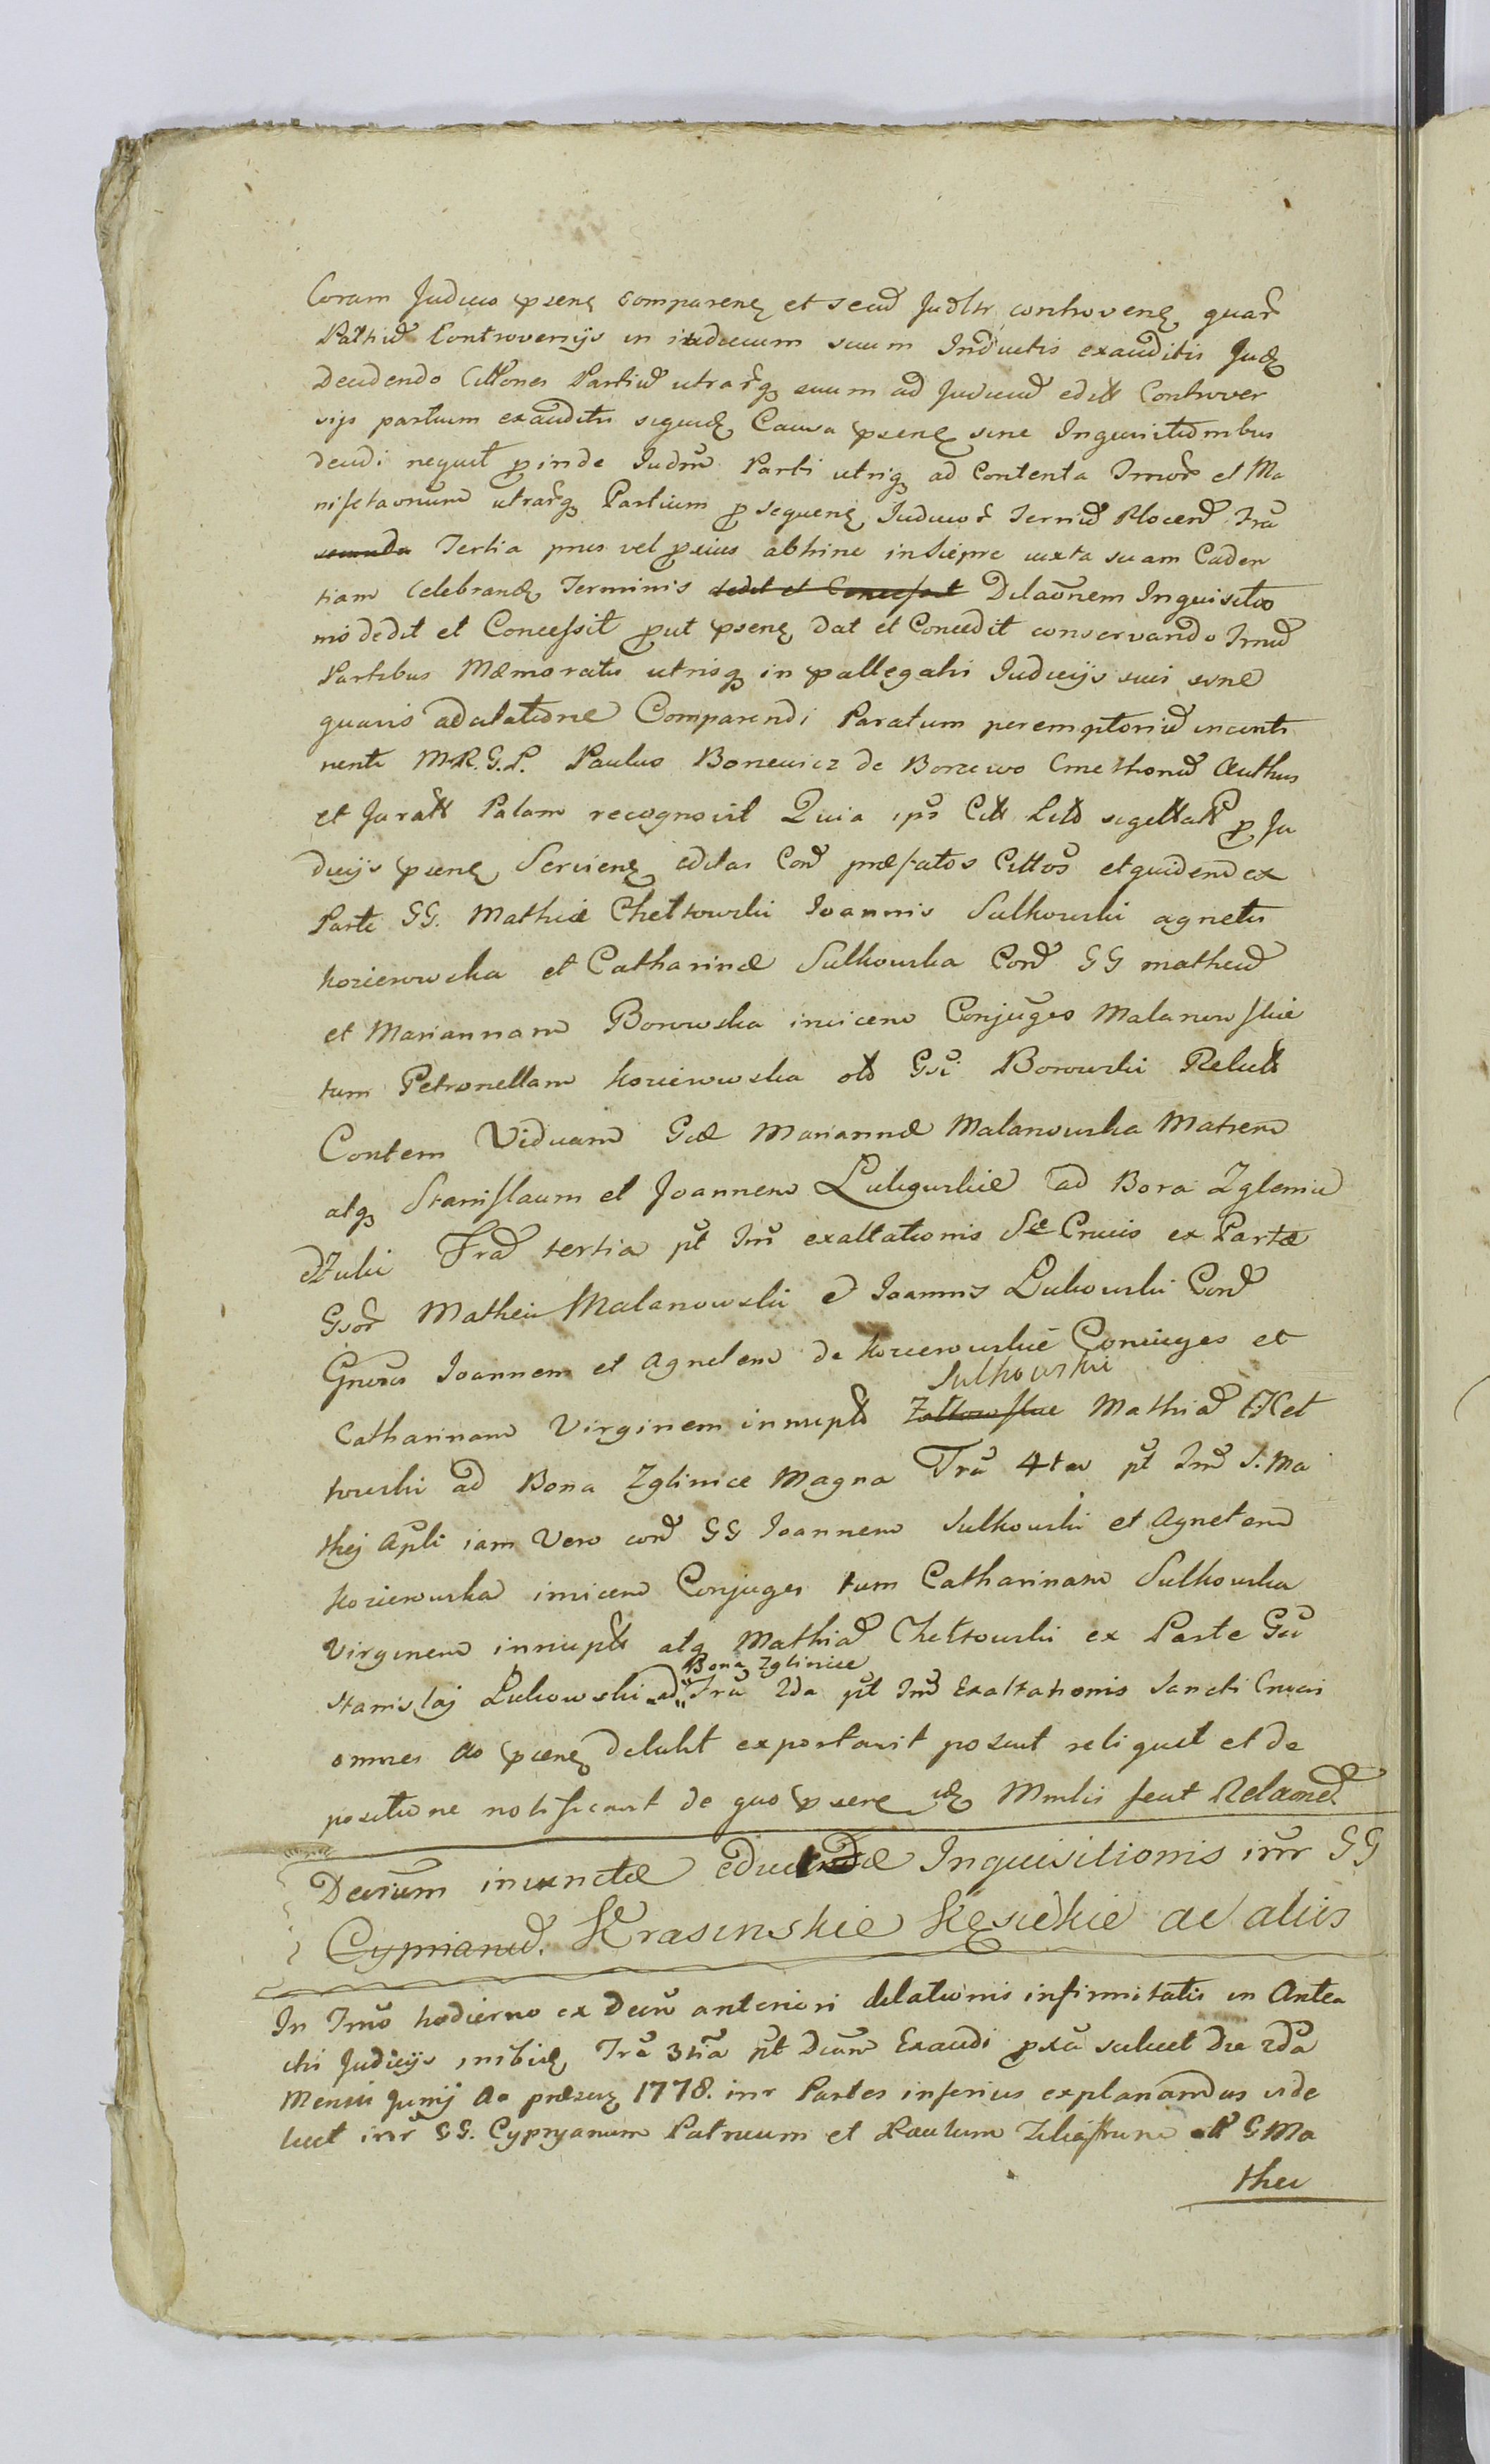 Coram Judicio psene comparenẹ et secud Judltr controvenẹ quar
Partiū Controversijs in iudicium suum Inductis exauditis Judẹ
Decidendo Cittones Partiū utrarq suum ad Judiciū edit Controver
sijs partium exauditis siquidẹ Causa psenẹ sine Inquisitionibus
decidi nequit proinde Judm Parti utriq ad Contenta Imor et Ma
nifestaonum utrarq Partium pro sequenẹ Judicior Terrū Plocen Fra
secunda Tertia prius vel proxius abhinc in Sierpc iuxta suam Caden
tiam Celebrandẹ Terminis dedit et Concessit Dilaonem Inquisitio
nis dedit et Concessit prout psenẹ dat et Concedit conservando Tmū
Partibus Mæmoratis utrisq in pallegatis Judicijs sui sine
quavis adcitatione Comparendi Paratum peremptoriū inconti
nenti M.R.G.P. Paulus Boneuicz de Borzewo Cmethonū Authus
et Juratt Palam recognovit Quia ips Citt Litt sigillatt pro Ju
dicijs psenẹ Servienẹ editas Cord præfatos Cittos et quidem ex
Parte GG. Mathiæ Chełkowski Joannis Sulkowski agnetis
kozierowska et Catharinæ Sulkowska Cord GG matheū
et Mariannam Borowska invicem Conjuges Malanowskie
tum Petronellam kozierowska olt Gsi Borowski Relictt
Contem Viduam Gæ Mariannæ Malanowska Matrem
atq Stanislaum et Joannem Lukowskie ad Bora Zglenice
dZuki Frā tertia pt Im exaltationis Sæ Crucis ex Partæ
Gsor Mathei Malanowski et Joannis Lukowski Cord
Gnosos Joannem et Agnetem de kozierowskie Coniuges et
Sulkowskie
Catharinam Virginem innuptt Zalkowskie Mathiā Chet
kowski ad Bona Zglinice Magna Frā 4ta pt Im S. Ma
thej Apli iam Vero cord GG Joannem Sulkowski et Agnetem
kozierowska invicem Conjuges tum Catharinam Sulkowska
Virginem innuptt atq Mathiā Chetkowski ex Parte Gsi
Bona Zglinice
Stanislaj Lukowski ad Frā 2da pt Im Exaltationis Sancti Crucis
omnes Ao psenẹ detulit exportavit posuit reliquit et de
positione notificavit de quo psene idẹ Mmlis fecit Relaonē
Decrum iniunctæ educendæ Inquisitionis intr GG
Cyprianū. Krasinskie Kęsickie ac aliis
In Tmo hodierno ex Decro anteriori dilationis infirmitatis in Antea
ctis Judicijs inibidẹ Frā 3tia pt Dcam Exaudi proxā scilicet Die 2da
Mensis Junij Ao præsenẹ 1778. intr Partes inferius explanandas vide
licet intr GG. Cypryanum Patruum et Paulum Filiastrum olt G Ma
thei